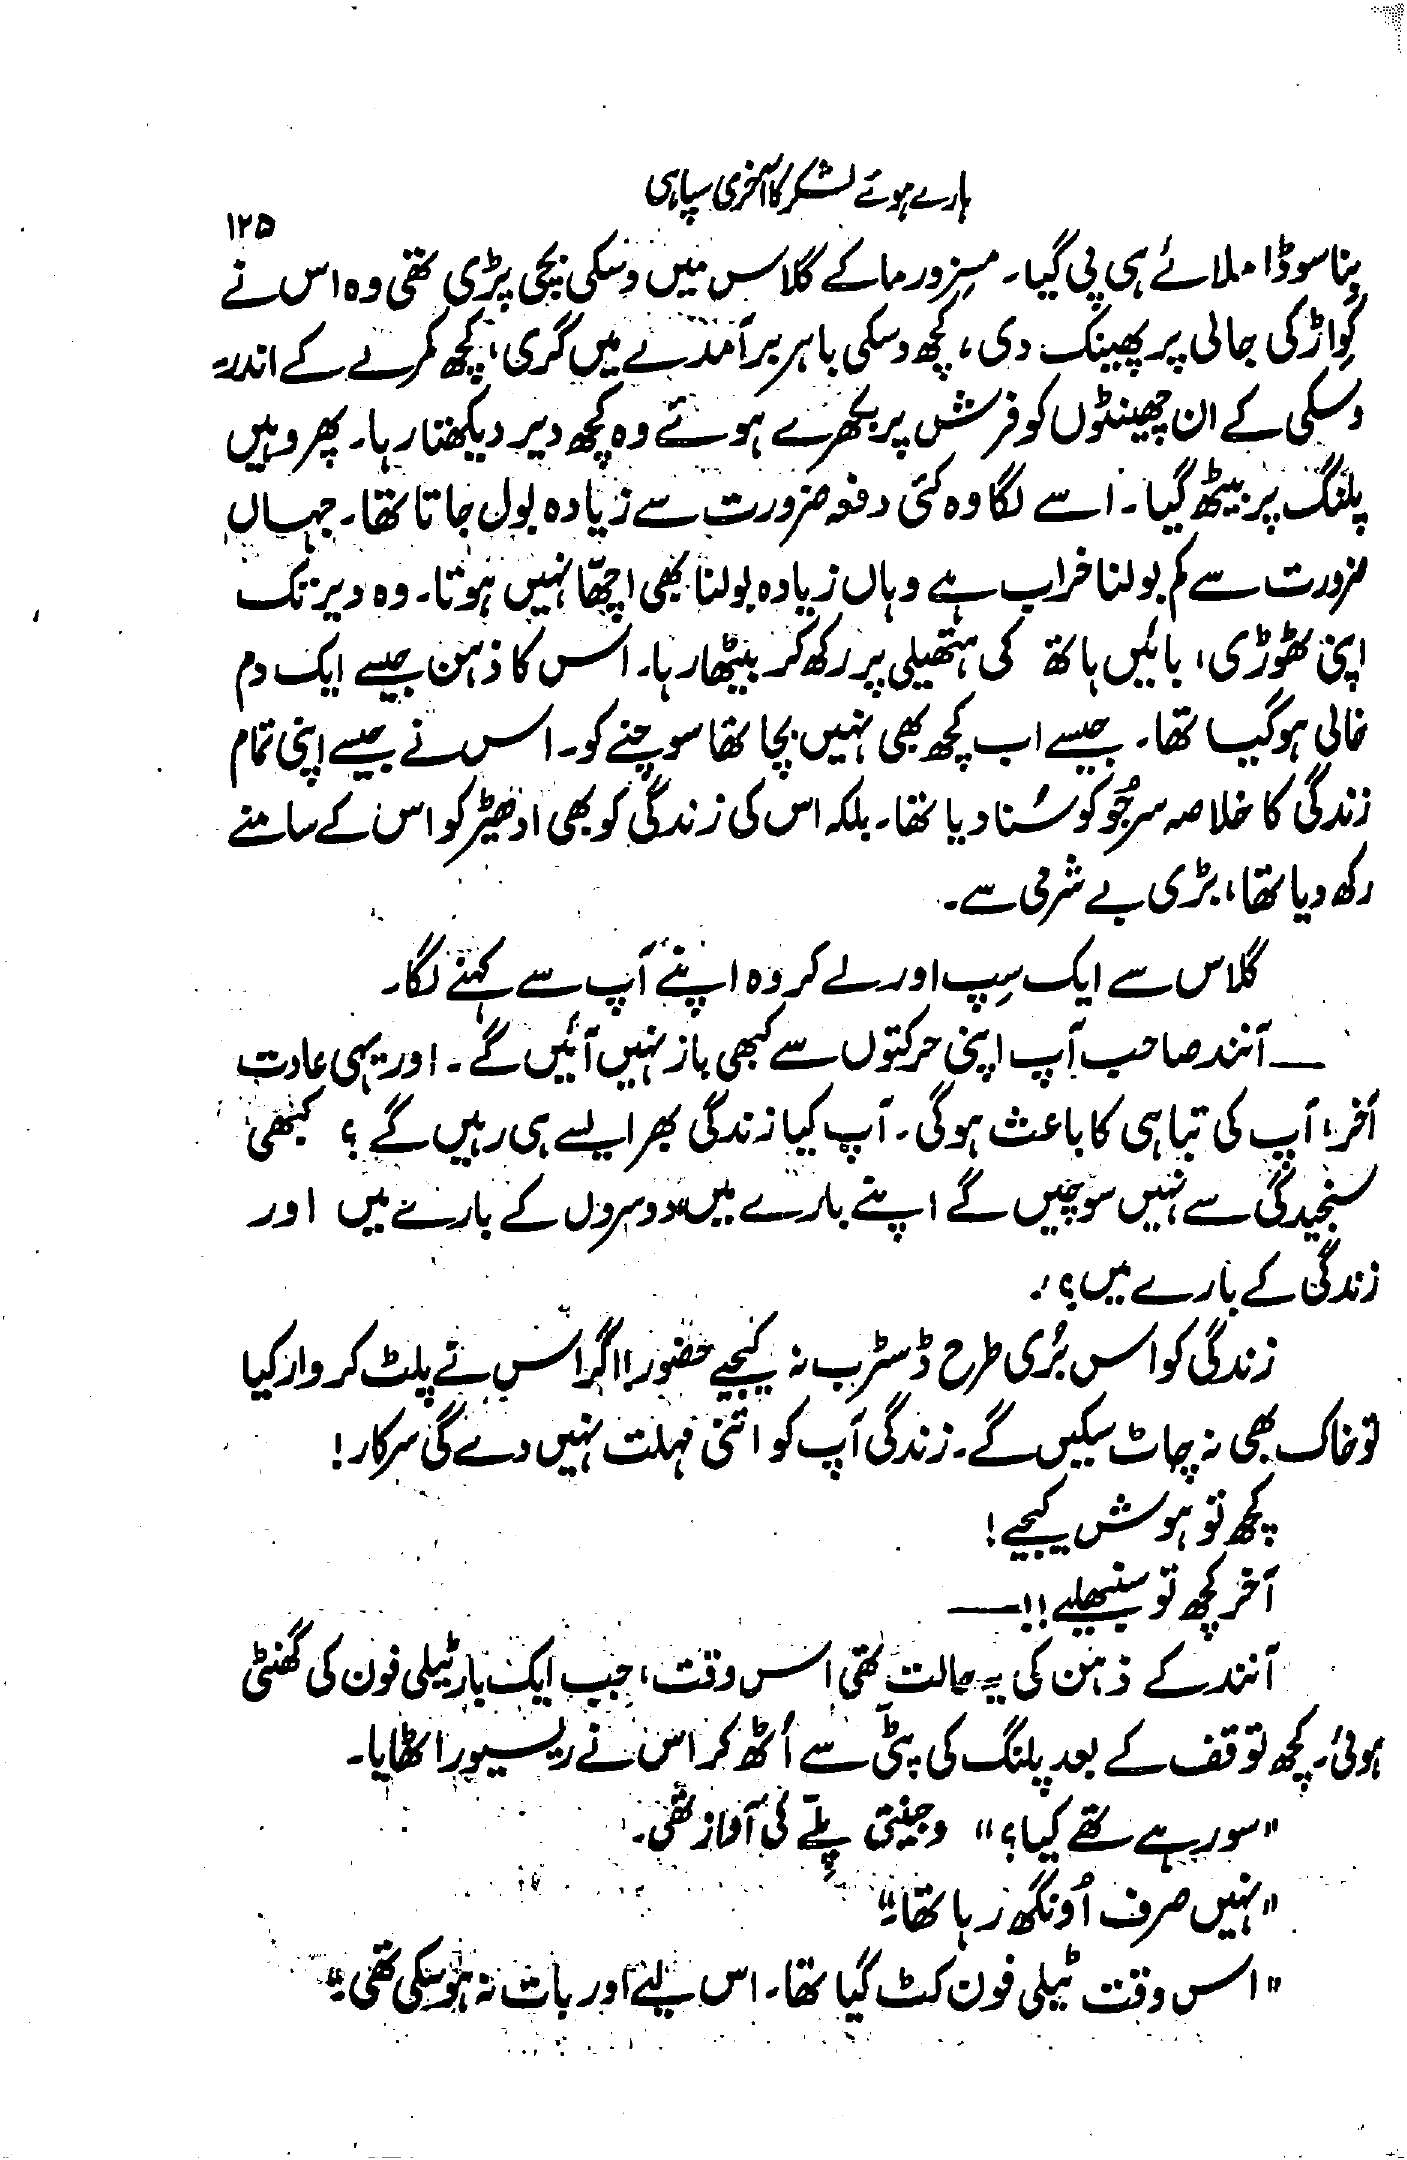 ہارے ہوئے لشکر کا آخری سپاہی
۱۲۵
بِنا سوڈا ملائے ہی پی گیا۔ مسز ورما کے گلاس میں وہسکی بچی پڑی تھی وہ اس نے
کِواڑ کی جالی پر پھینک دی، کچھ وسکی باہر برآمدے میں گری، کچھ کمرے کے اندر۔
وسکی کے ان چھینٹوں کو فرش پر بکھرے ہوئے وہ کچھ دیر دیکھتا رہا۔ پھر وہیں
پلنگ پر بیٹھ گیا۔ اسے لگا وہ کئی دفعہ ضرورت سے زیادہ بول جاتا تھا۔ جہاں
ضرورت سے کم بولنا خراب ہے وہاں زیادہ بولنا بھی اچھّا نہیں ہوتا۔ وہ دیر تک
اپنی ٹھوڑی، بائیں ہاتھ کی ہتھیلی پر رکھ کر بیٹھا رہا۔ اس کا ذہن جیسے ایک دم
خالی ہو گیا تھا۔ جیسے اب کچھ بھی نہیں بچا تھا سوچنے کو۔ اس نے جیسے اپنی تمام
زندگی کا خلاصہ سرجُو کو سُنا دیا تھا۔ بلکہ اس کی زندگی کو بھی ادھیڑ کو اس کے سامنے
رکھ دیا تھا، بڑی بے شرمی سے۔
گلاس سے ایک سِپ اور لے کر وہ اپنے آپ سے کہنے لگا۔
— آنند صاحب آپ اپنی حرکتوں سے کبھی باز نہیں آئیں گے۔ اور یہی عادت
آخر، آپ کی تباہی کا باعث ہوگی۔ آپ کیا زندگی بھر ایسے ہی رہیں گے؟ کبھی
سنجیدگی سے نہیں سوچیں گے اپنے بارے میں، دوسروں کے بارے میں اور
زندگی کے بارے میں؟،
زندگی کو اس بُری طرح ڈسٹرب نہ کیجیے حضور!! اگر اس نے پلٹ کر وار کیا
تو خاک بھی نہ چاٹ سکیں گے۔ زندگی آپ کو اتنی مہلت نہیں دے گی سرکار!
کچھ تو ہوش کیجیے!
آخر کچھ تو سنبھلیے!! —
آنند کے ذہن کی یہ حالت تھی اس وقت، جب ایک بار ٹیلی فون کی گھنٹی
ہوئی۔ کچھ توقف کے بعد پلنگ کی پٹّی سے اُٹھ کر اس نے ریسیور اٹھایا۔
"سو رہے تھے کیا؟" وجینتی پِلّے کی آواز تھی۔
"نہیں صرف اُونگھ رہا تھا۔"
"اس وقت ٹیلی فون کٹ گیا تھا۔ اس لیے اور بات نہ ہو سکی تھی۔"